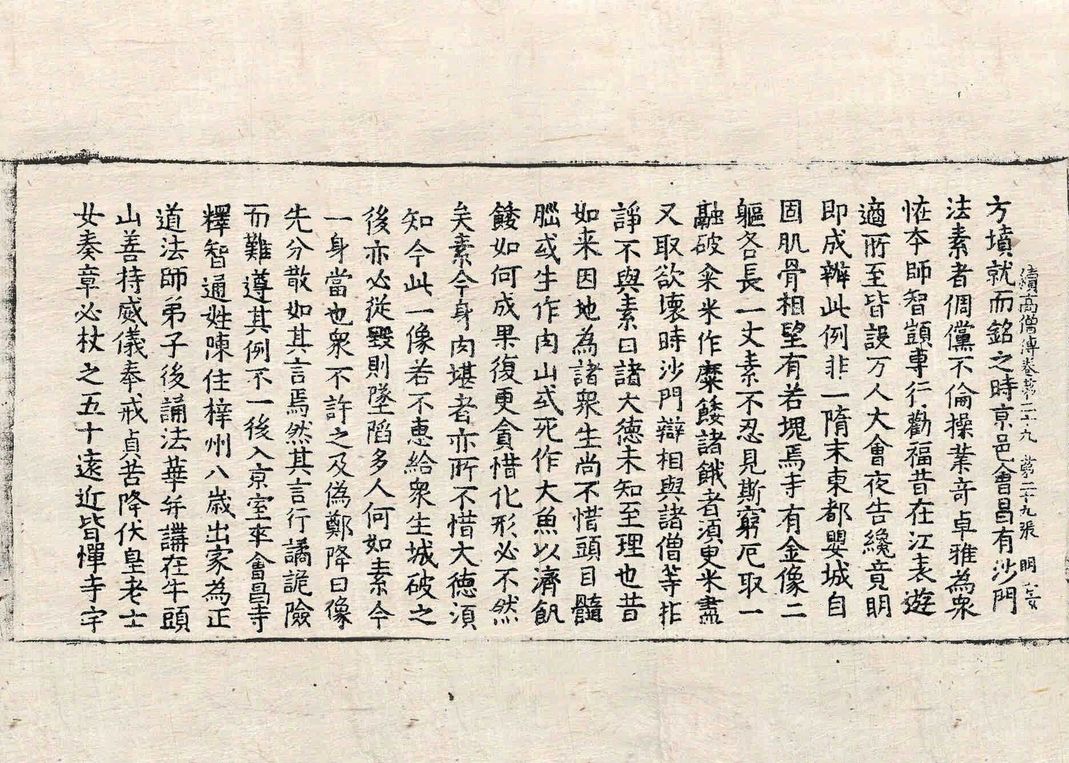 方墳就而銘之時京邑會昌有沙門
續高僧傳卷第二十九 第二十九張 明
法素者倜儻不倫操業奇卓雅為衆
恠本師智顗專行勸福昔在江表遊
適所至皆設万人大會夜告纔竟明
即成辦此例非一隋末東都嬰城自
固肌骨相望有若塊焉寺有金像二
軀各長一丈素不忍見斯窮厄取一
融破籴米作糜餧諸餓者須臾米盡
又取欲壞時沙門辯相與諸僧等拒
諍不與素曰諸大德未知至理也昔
如来因地為諸衆生尚不惜頭目髓
腦或生作肉山或死作大魚以濟飢
餧如何成果復更貪惜化形必不然
矣素今身肉堪者亦所不惜大德須
知今此一像若不惠給衆生城破之
後亦必從毀則墜陷多人何如素今
一身當也衆不許之及偽鄭降日像
先分散如其言焉然其言行譎詭險
而難遵其例不一後入京室卒會昌寺
釋智通姓陳住梓州八歲出家為正
道法師弟子後誦法華并講在牛頭
山善持威儀奉戒貞苦降伏皇老士
女奏章必杖之五十遠近皆憚寺宇